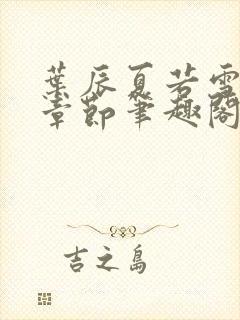 葉辰夏若雪
章節筆趣閣
吉之島